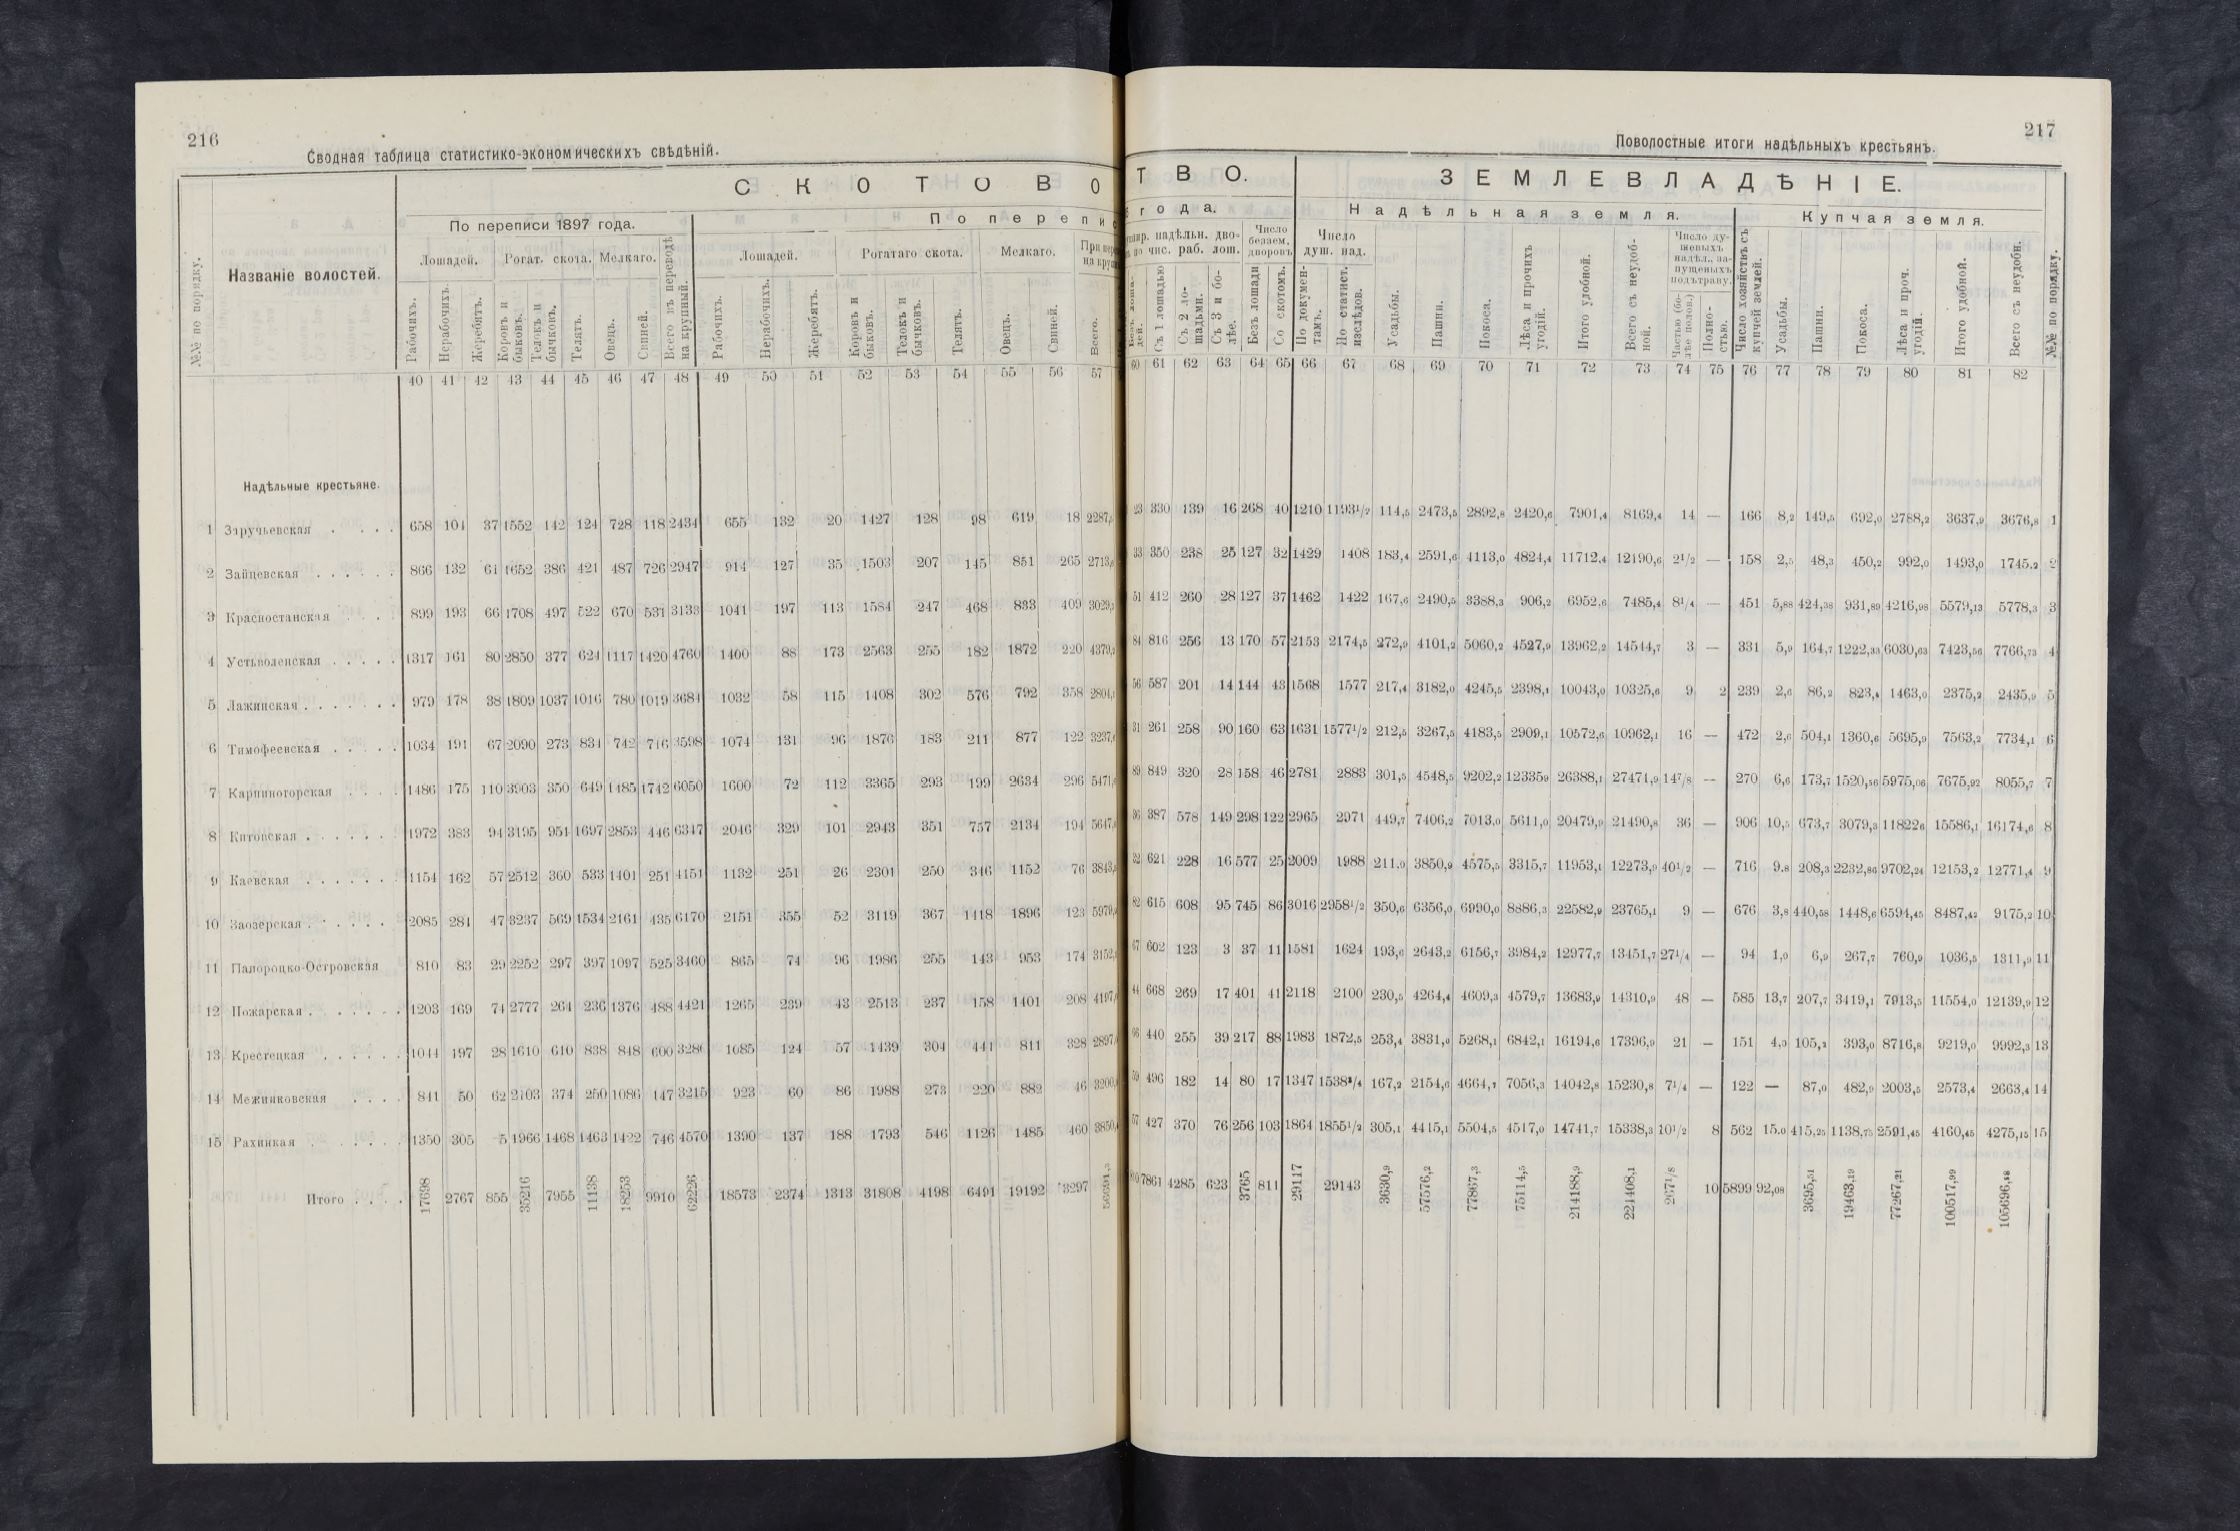 216
Сводная таблица статистико-экономическихъ свѣдѣній.
№№ по порядку.
Названіе волостей.
СКОТОВО
По переписи 1897 года.
По перепис
Лошадей. Рогат. скота. Мелкаго.
Лошадей. Рогатаго скота. Мелкаго.
Рабочихъ. Нерабочихъ. Жеребятъ. Коровъ и быковъ. Телокъ и бычковъ. Телятъ. Овецъ. Свиней. Всего въ переводѣ на крупный. Рабочихъ. Нерабочихъ. Жеребятъ. Коровъ и быковъ. Телокъ и бычковъ. Телятъ. Овецъ. Свиней. Всего.
40 41 42 43 44 45 46 47 48 49 50 51 52 53 54 55 56 57
Надѣльные крестьяне.
1 Заручьевская . . . . 658 101 37 1552 142 124 728 118 2434 655 132 20 1427 128 98 619 18
2 Зайцевская . . . . . . 866 132 61 1652 386 421 487 726 2947 914 127 35 1503 207 145 851 265
3 Красностанская . . . 899 193 66 1708 497 522 670 531 3133 1041 197 113 1584 247 468 833 409
4 Устьволенская . . . . . 1317 161 80 2850 377 624 1117 1420 4760 1400 88 173 2563 255 182 1872 220
5 Лажинская . . . . . . . 979 178 38 1809 1037 1016 780 1019 3684 1032 58 115 1408 302 576 792 358
6 Тимофеевская . . . . . 1034 191 67 2090 273 834 742 716 3598 1074 131 96 1876 183 211 877 122
7 Карпиногорская . . . . 1486 175 110 3903 350 649 1485 1742 6050 1600 72 112 3365 293 199 2634 296
8 Китовская . . . . . . 1972 383 94 3195 951 1697 2853 446 6347 2046 329 101 2943 351 757 2134 194
9 Каевская . . . . . . 1154 162 57 2512 360 533 1401 251 4151 1132 251 26 2301 250 346 1152 76
10 Заозерская . . . . . . 2085 281 47 3237 569 1534 2161 435 6170 2151 355 52 3119 367 1418 1896 123
11 Папороцко-Островская 810 83 29 2252 297 397 1097 525 3460 865 74 96 1986 255 143 953 174
12 Пожарская . . . . . . . 1203 169 74 2777 264 236 1376 488 4421 1265 239 43 2513 237 158 1401 208
13 Крестецкая . . . . . . 1044 197 28 1610 610 838 848 600 3286 1085 124 57 1439 304 441 811 328
14 Межниковская . . . . 841 50 62 2103 374 250 1086 147 3215 923 60 86 1988 273 220 882 46
15 Рахинкая . . . . . . 1350 305 5 1966 1468 1463 1422 746 4570 1390 137 188 1793 546 1126 1485 460
Итого . . . . 17698 2767 855 35216 7955 11138 18253 9910 62226 18573 2374 1313 31808 4198 6491 19192 3297
217
Поволостные итоги надѣльныхъ крестьянъ.
ТВО.
ЗЕМЛЕВЛАДѢНІЕ.
года.
Надѣльная земля.
Купчая земля.
надѣльн. дворовъ по чис. раб. лош.
Число безаем. дворовъ
Число душ. над.
Число душевыхъ надѣл., запущеныхъ подъ траву.
Съ 1 лошадью Съ 2 лошадьми. Съ 3 и болѣе. Безъ лошади Со скотомъ. По документамъ. По статист. изслѣдов. Усадьбы. Пашни. Покоса. Лѣса и прочихъ угодій. Итого удобной. Всего съ неудобной. Частью (болѣе полов.) Полностью. Число хозяйствъ съ купчей землей. Усадьбы. Пашни. Покоса. Лѣса и проч. угодій. Итого удобной. Всего съ неудобн. №№ по порядку.
60 61 62 63 64 65 66 67 68 69 70 71 72 73 74 75 76 77 78 79 80 81 82
330 139 16 268 40 1210 11931/2 114,5 2473,5 2892,8 2420,6 7901,4 8169,4 14 — 166 8,2 149,5 692,0 2788,2 3637,9 3676,8 1
350 238 25 127 32 1429 1408 183,4 2591,6 4113,0 4824,4 11712,4 12190,6 21/2 — 158 2,5 48,3 450,2 992,0 1493,0 1745.2 2
412 260 28 127 37 1462 1422 167,6 2490,5 3388,3 906,2 6952,6 7485,4 81/4 — 451 5,88 424,38 931,89 4216,98 5579,13 5778,3 3
816 256 13 170 57 2153 2174,5 272,9 4101,2 5060,2 4527,9 13962,2 14544,7 3 — 331 5,9 164,7 1222,33 6030,63 7423,56 7766,73 4
587 201 14 144 43 1568 1577 217,4 3182,0 4245,5 2398,1 10043,0 10325,6 9 2 239 2,6 86,2 823,4 1463,0 2375,2 2435,9 5
261 258 90 160 63 1631 15771/2 212,5 3267,5 4183,5 2909,1 10572,6 10962,1 16 — 472 2,6 504,1 1360,6 5695,9 7563,2 7734,1 6
849 320 28 158 46 2781 2883 301,5 4548,5 9202,2 12335,9 26388,1 27471,9 147/8 — 270 6,6 173,7 1520,56 5975,06 7675,92 8055,7 7
387 578 149 298 122 2965 2971 449,7 7406,2 7013,0 5611,0 20479,9 21490,8 36 — 906 10,5 673,7 3079,3 11822,6 15586,1 16174,6 8
621 228 16 577 25 2009 1988 211.9 3850,9 4575,5 3315,7 11953,1 12273,9 401/2 — 716 9.8 208,3 2232,86 9702,24 12153,2 12771,4 9
615 608 95 745 86 3016 29581/2 350,6 6356,0 6990,0 8886,3 22582,9 23765,1 9 — 676 3,8 440,58 1448,6 6594,45 8487,42 9175,2 10
602 123 3 37 11 1581 1624 193,6 2643,2 6156,7 3984,2 12977,7 13451,7 271/4 — 94 1,0 6,9 267,7 760,9 1036,5 1311,9 11
668 269 17 401 41 2118 2100 230,5 4264,4 4609,3 4579,7 13683,9 14310,9 48 — 585 13,7 207,7 3419,1 7913,5 11554,0 12139,9 12
440 255 39 217 88 1983 1872,5 253,4 3831,0 5268,1 6842,1 16194,6 17396,9 21 — 151 4,0 105,2 393,0 8716,8 9219,0 9992,3 13
496 182 14 80 17 1347 15383/4 167,2 2154,6 4664,7 7056,3 14042,8 15230,8 71/4 — 122 — 87,0 482,9 2003,5 2573,4 2663,4 14
427 370 76 256 103 1864 18551/2 305,1 4415,1 5504,5 4517,0 14741,7 15338,3 101/2 8 562 15.0 415,25 1138,75 2591,45 4160,45 4275,15 15
7861 4285 623 3765 811 29117 29143 3630,9 57576,2 77867,3 75114,5 214188,9 224408,1 2671/8 10 5899 92,08 3695,31 19463,19 77267,21 100517,99 105696,88